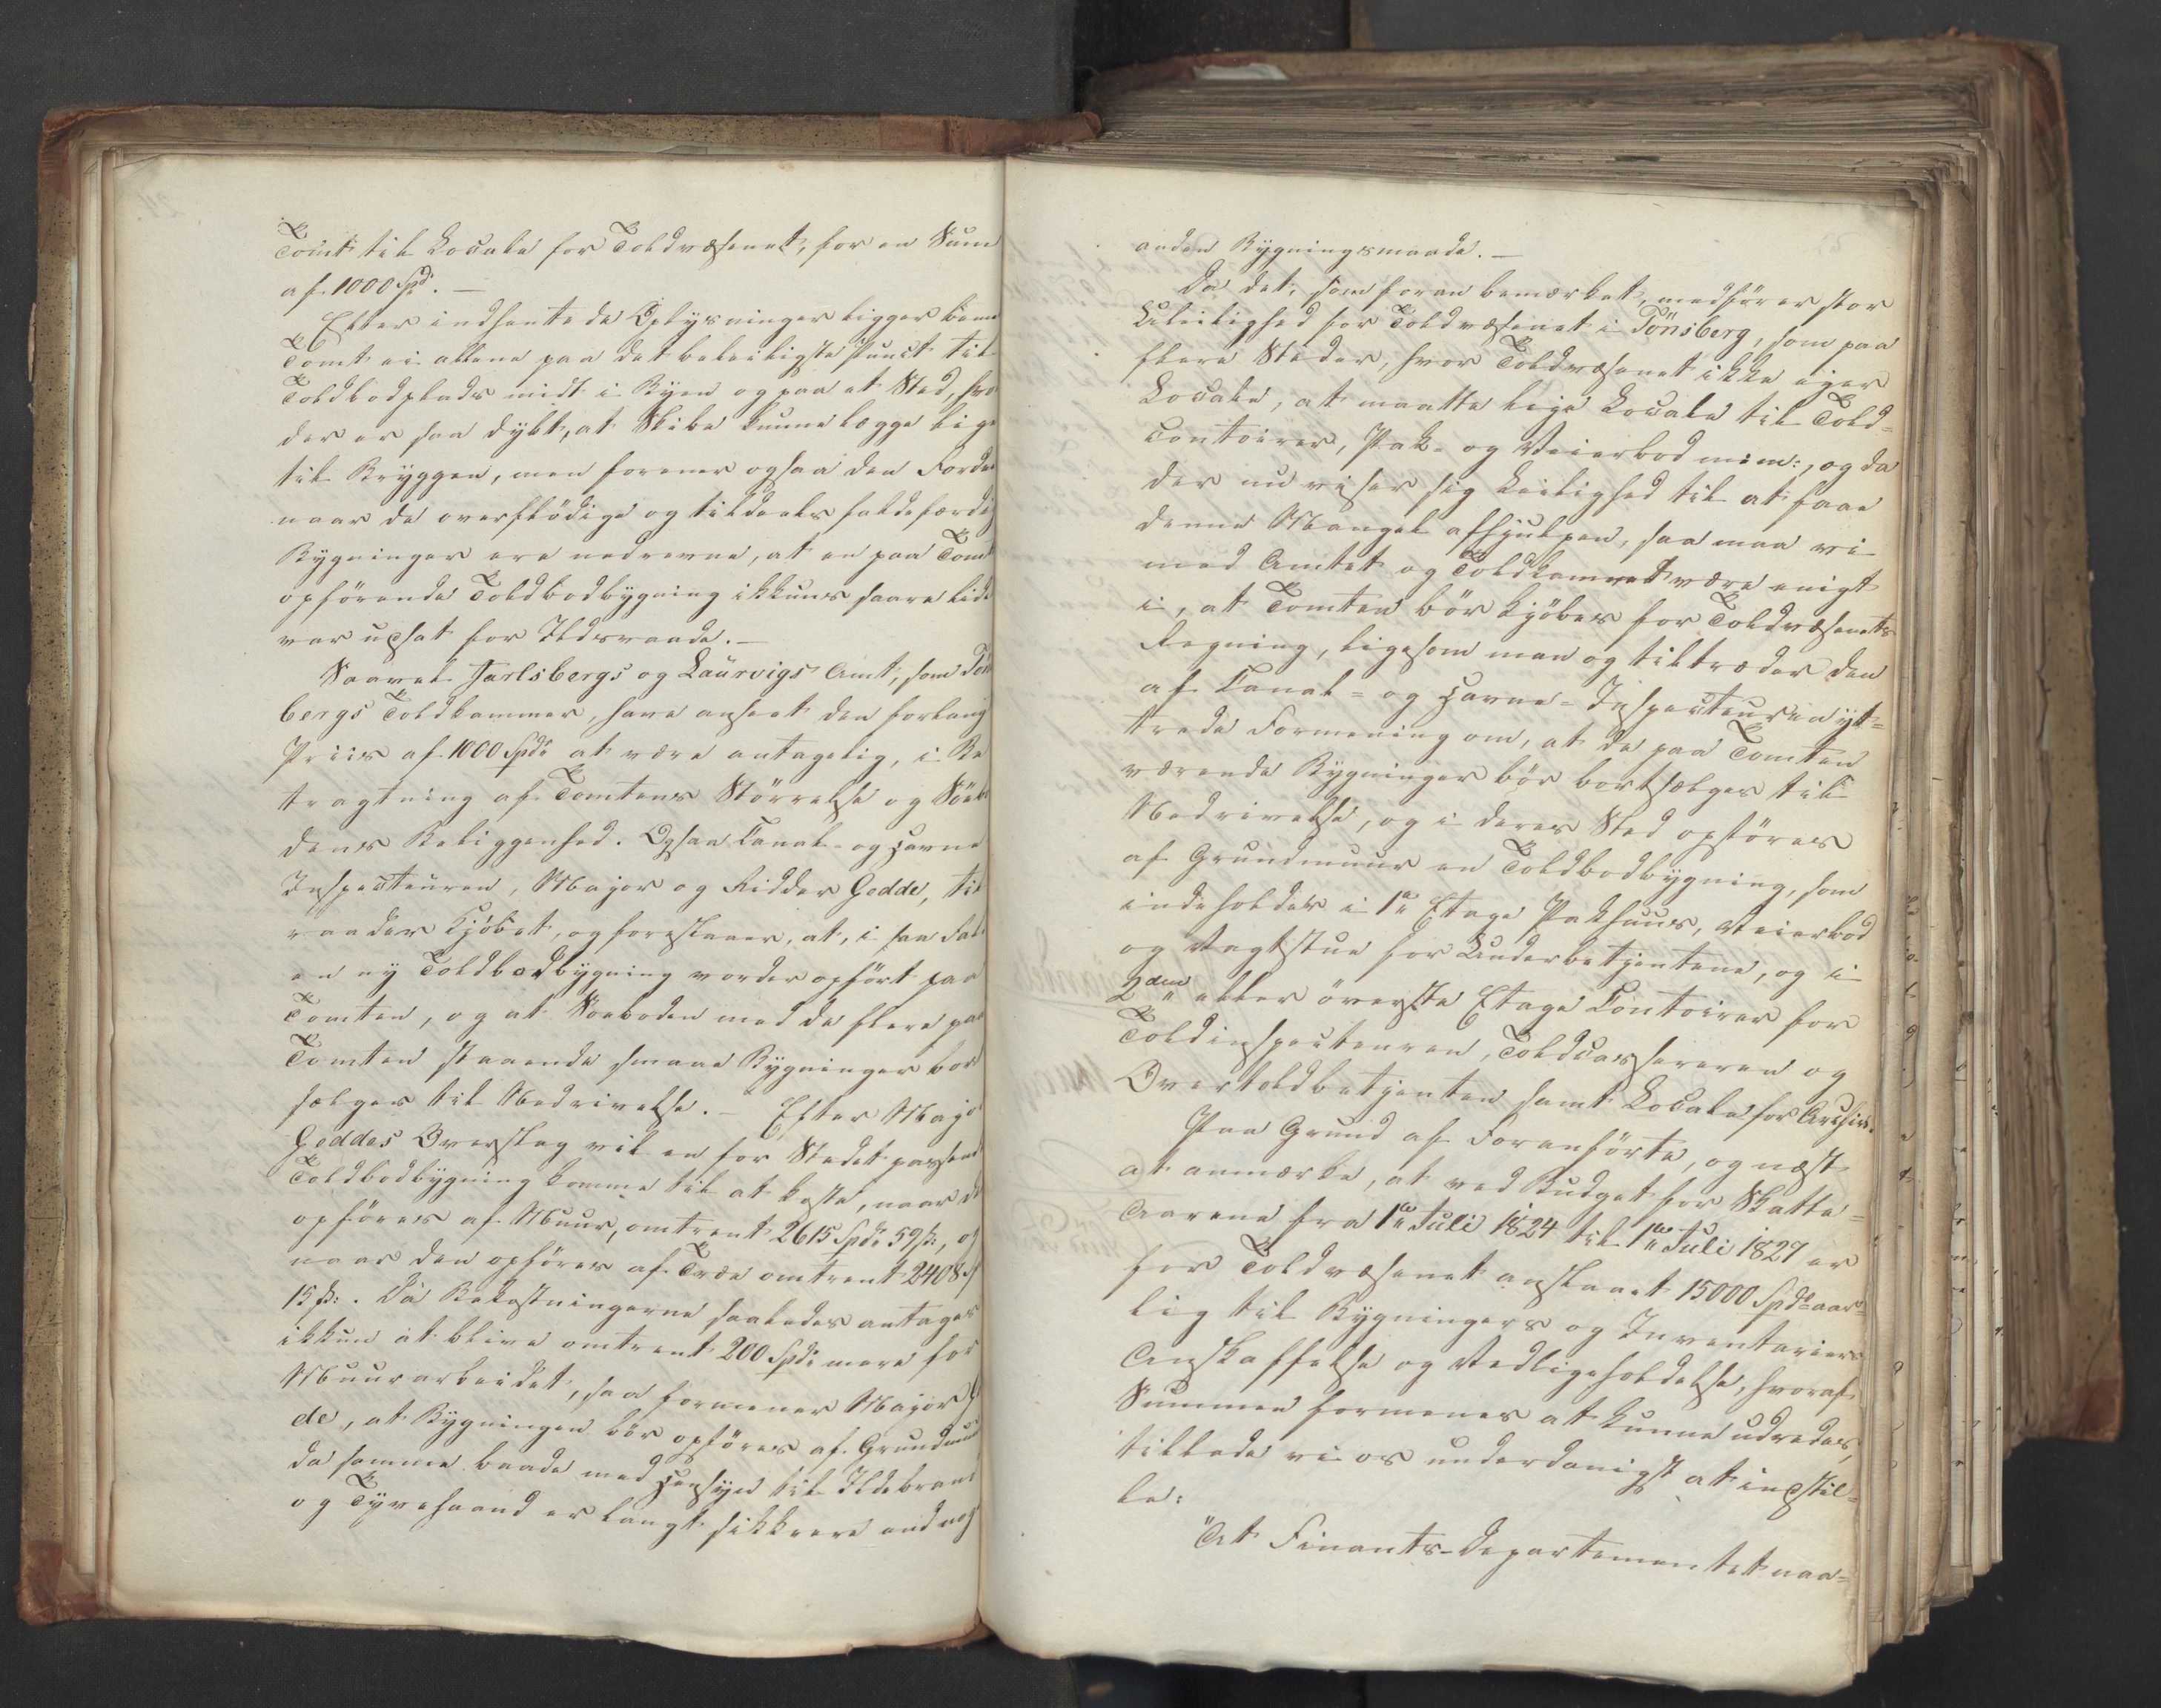 Tomt til Locale for Toldvæsenet, for en Sum
af 1000 Spd. —
Efter indhentede Oplysninger ligger bem
Tomt ei allene paa det beleiligste Punct til
Toldbodplads midt i Byen og paa et Sted, hvo
der er saa dybt, at Skibe kunne lægge lige
til Bryggen, men forener ogsaa den Fordee
naar de overflödige og tildeels faldefærdig
Bygninger ere nedrevne, at en paa Tomt
opförende Toldbodbygning ikkuns saare lidt
var udsat for Ildsvaade. —
Saavel Jarlsbergs og Laurvigs Amt, som Töns
bergs Toldkammer, have anseet den forlang
Priis af 1000 Spd at være antagelig, i Be
tragtning af Tomtens Störrelse og Söebo
dens Beliggenhed. Ogsaa Canal- og Havne
Inspecteuren, Major og Ridder Gedde, til
raader Kjöbet, og foreslaaer, at, i saa Fald
en ny Toldbodbygning vorder opfört paa
Tomten, og at Söeboden med de flere paa
Tomten staaende smaae Bygninger bort
sælges til Nedrivelse. — Efter Majo
Geddes Overslag vil en for Stedet passende
Toldbodbygning komme til at koste, naar de
opföres af Muur, omtrent 2615 Spd 59 ß:, og
naar den opföres af Træe omtrent 2408 S
15 ß:. Da Bekostningerne saaledes antages
ikkun at blive omtrent 200 Spd mere for
Muurarbeidet, saa formener Major G
de, at Bygningen bör opföres af Grundmuur
da samme baade med Hensyn til Ildebrand
og Tyvehaand er langt sikkrere end no
anden Bygningsmaade. —
Da det, som foran bemærket, medförer stor
Uleilighed for Toldvæsenet i Tönsberg, som paa
flere Steder, hvor Toldvæsenet ikke ejer
Locale, at maatte leje Locale til Told=
contoirer, Pak- og Veierbod m: m:, og da
der nu viser sig Leilighed til at faae
denne Mangel afhjulpen, saa maa vi
med Amtet og Toldkamret være enigt
i, at Tomten bör kjöbes for Toldvæsenets
Regning, ligesom man og tiltræder den
af Canal= og Havne-Inspecteuren yt=
trede Formening om, at de paa Tomten
værende Bygninger bör bortsælges til
Nedrivelse, og i deres Sted opföres
af Grundmuur en Toldbodbygning, som
indeholder i 1e Etage Pakhuus, Veierbod
og Vagtstue for Underbetjentene, og i
2den eller överste Etage Contoirer for
Toldinspecteuren, Toldcassereren og
Overtoldbetjenten samt Locale for Archiv.
Paa Grund af Foranförte, og næst
at anmærke, at ved Budget for Skatte=
Aarene fra 1te Juli 1824 til 1te Juli 1827 er
for Toldvæsenet anslaaet 15000 Spd aar=
lig til Bygningers og Inventariers
Anskaffelse og Vedligeholdelse, hvoraf
Summen formenes at kunne udredes,
tillade vi os underdanigst at indstil=
le:
"At Finants-Departementet naa=